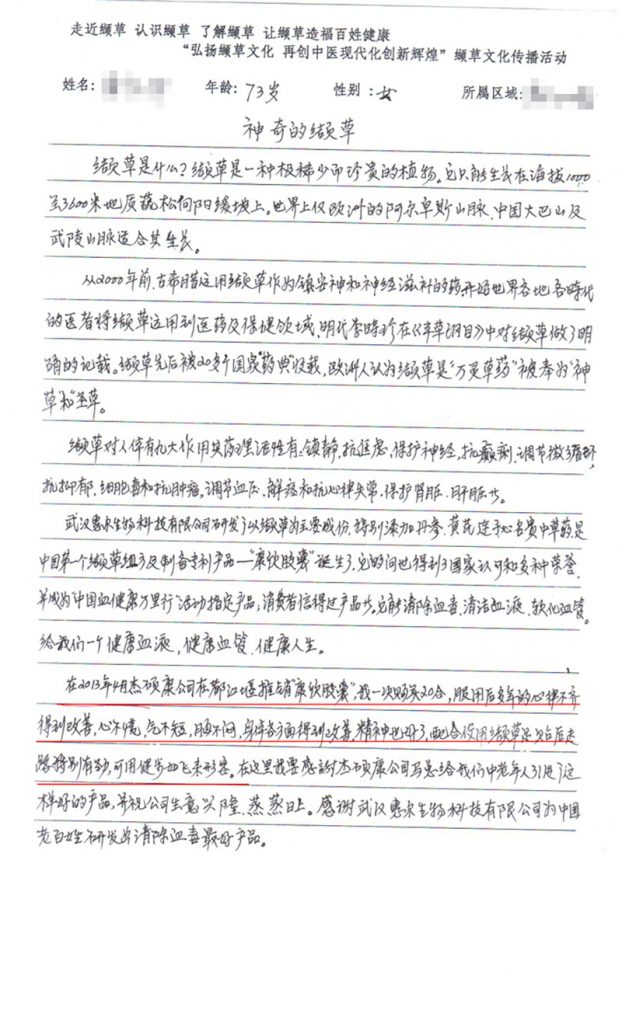 走近缬草 认识缬草 了解缬草 让缬草造福百姓健康
“弘扬缬草文化 再创中医现代化创新辉煌”缬草文化传播活动
姓名: 年龄: 73岁 性别: 女 所属区域:
神奇的缬草
缬草是什么?缬草是一种极稀少而珍贵的植物。它只能生长在海拔1000
至3600米地质疏松向阳缓坡上。世界上仅欧洲的阿尔卑斯山脉、中国大巴山及
武陵山脉适合其生长。
从2000年前,古希腊运用缬草作为镇安神和神经滋补的药,开始世界各地各时代
的医者将缬草运用到医药及保健领域,明代李时珍在《本草纲目》中对缬草做了明
确的记载。缬草先后被20多个国家药典收载,欧洲人认为缬草是“万灵草药”被奉为“神
草”和“圣草。
缬草对人体有九大作用其药理活性有:镇静、抗焦虑、保护神经、抗癫痫、调节微循环,
抗抑郁、细胞毒和抗肿瘤、调节血压、解痉和抗心律失常、保护肾脏、肝脏等。
武汉惠尔生物科技有限公司研发了以缬草为主要成份,特别添加丹参、黄芪、连和名贵中草药是
中国第一个缬草组方及制备专利产品—“康欣胶囊”诞生了,它的问世得到了国家认可和多种荣誉,
并成为“中国血健康万里行”活动指定产品;消费者信得过产品等。它能清除血毒,清洁血液,软化血管。
给我们一个健康血液,健康血管,健康人生。
在2013年4月杰硕康公司在都江堰推销“康欣胶囊”,我一次购买20合,服用后多年的心律不齐
得到改善,心不慌,气不短,胸不闷,身体各方面得到改善,精神也好了,配合使用缬草足贴后走
路特别有劲,可用健步如飞来形容。在这里我要感谢杰硕康公司马总给我们中老年人引进了这
样好的产品,并祝公司生意兴隆、蒸蒸日上。感谢武汉惠尔生物科技有限公司为中国
老百姓研发出清除血毒最好产品。